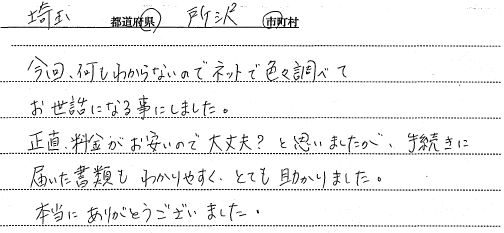 埼玉 都道府県 所沢 市町村
今回、何もわからないのでネットで色々調べて
お世話になる事にしました。
正直、料金がお安いので大丈夫?と思いましたが、手続きに
届いた書類もわかりやすく、とても助かりました。
本当にありがとうございました。